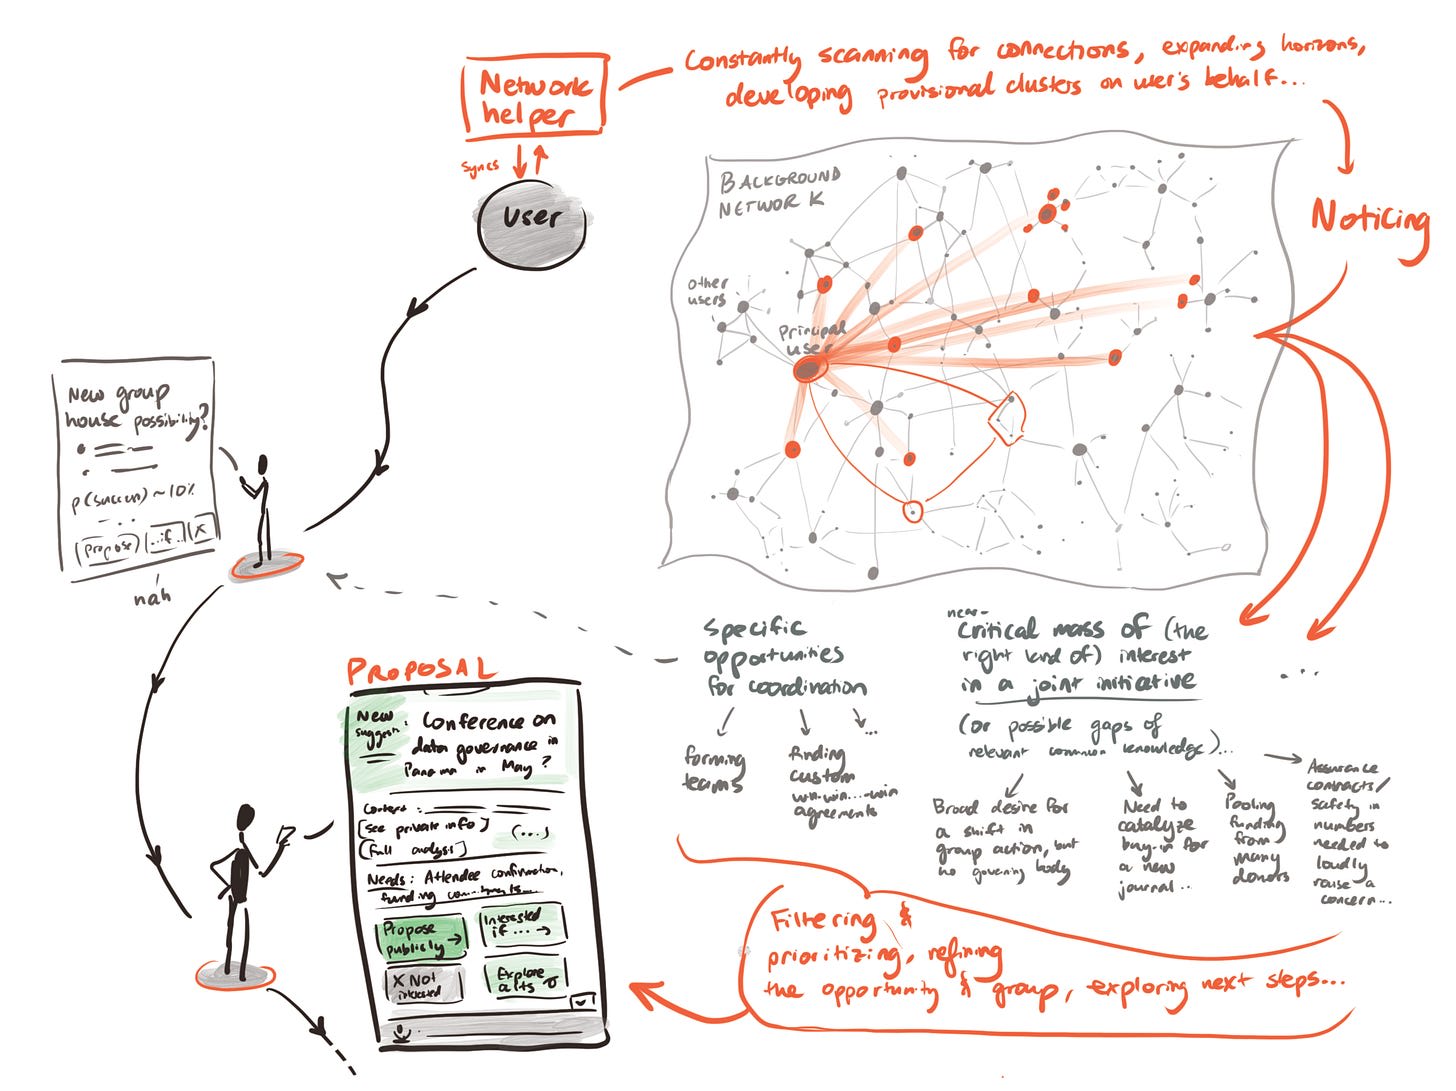 Network
helper
Constantly scanning for connections, expanding horizons,
developing provisional clusters on user's behalf...
syncs
User
BACKGROUND
NETWORK
other
users
Principal
user
Noticing
New group
house possibility?
p(success) ~10%
Propose
...if..
X
nah
Specific
opportunities
for coordination
forming
teams
finding
custom
win-win...-win
agreements
...
near-
Critical mass of (the
right kind of) interest
in a joint initiative
(or possible gaps of
relevant common knowledge)...
...
Broad desire for
a shift in
group action, but
no governing body
Need to
catalyze
buy-in for
a new
journal..
Pooling
funding
from
many
donors
Assurance
contracts/
safety in
numbers
needed to
loudly
raise a
concern...
PROPOSAL
New
suggest:
Conference on
data governance in
Panama in May?
Context:
[see private info]
(...)
[full analysis]
Needs: Attendee confirmation,
funding commitments...
Propose
publicly →
Interested
if ... →
X Not
interested
Explore
alts
Filtering &
prioritizing, refining
the opportunity & group, exploring next steps...